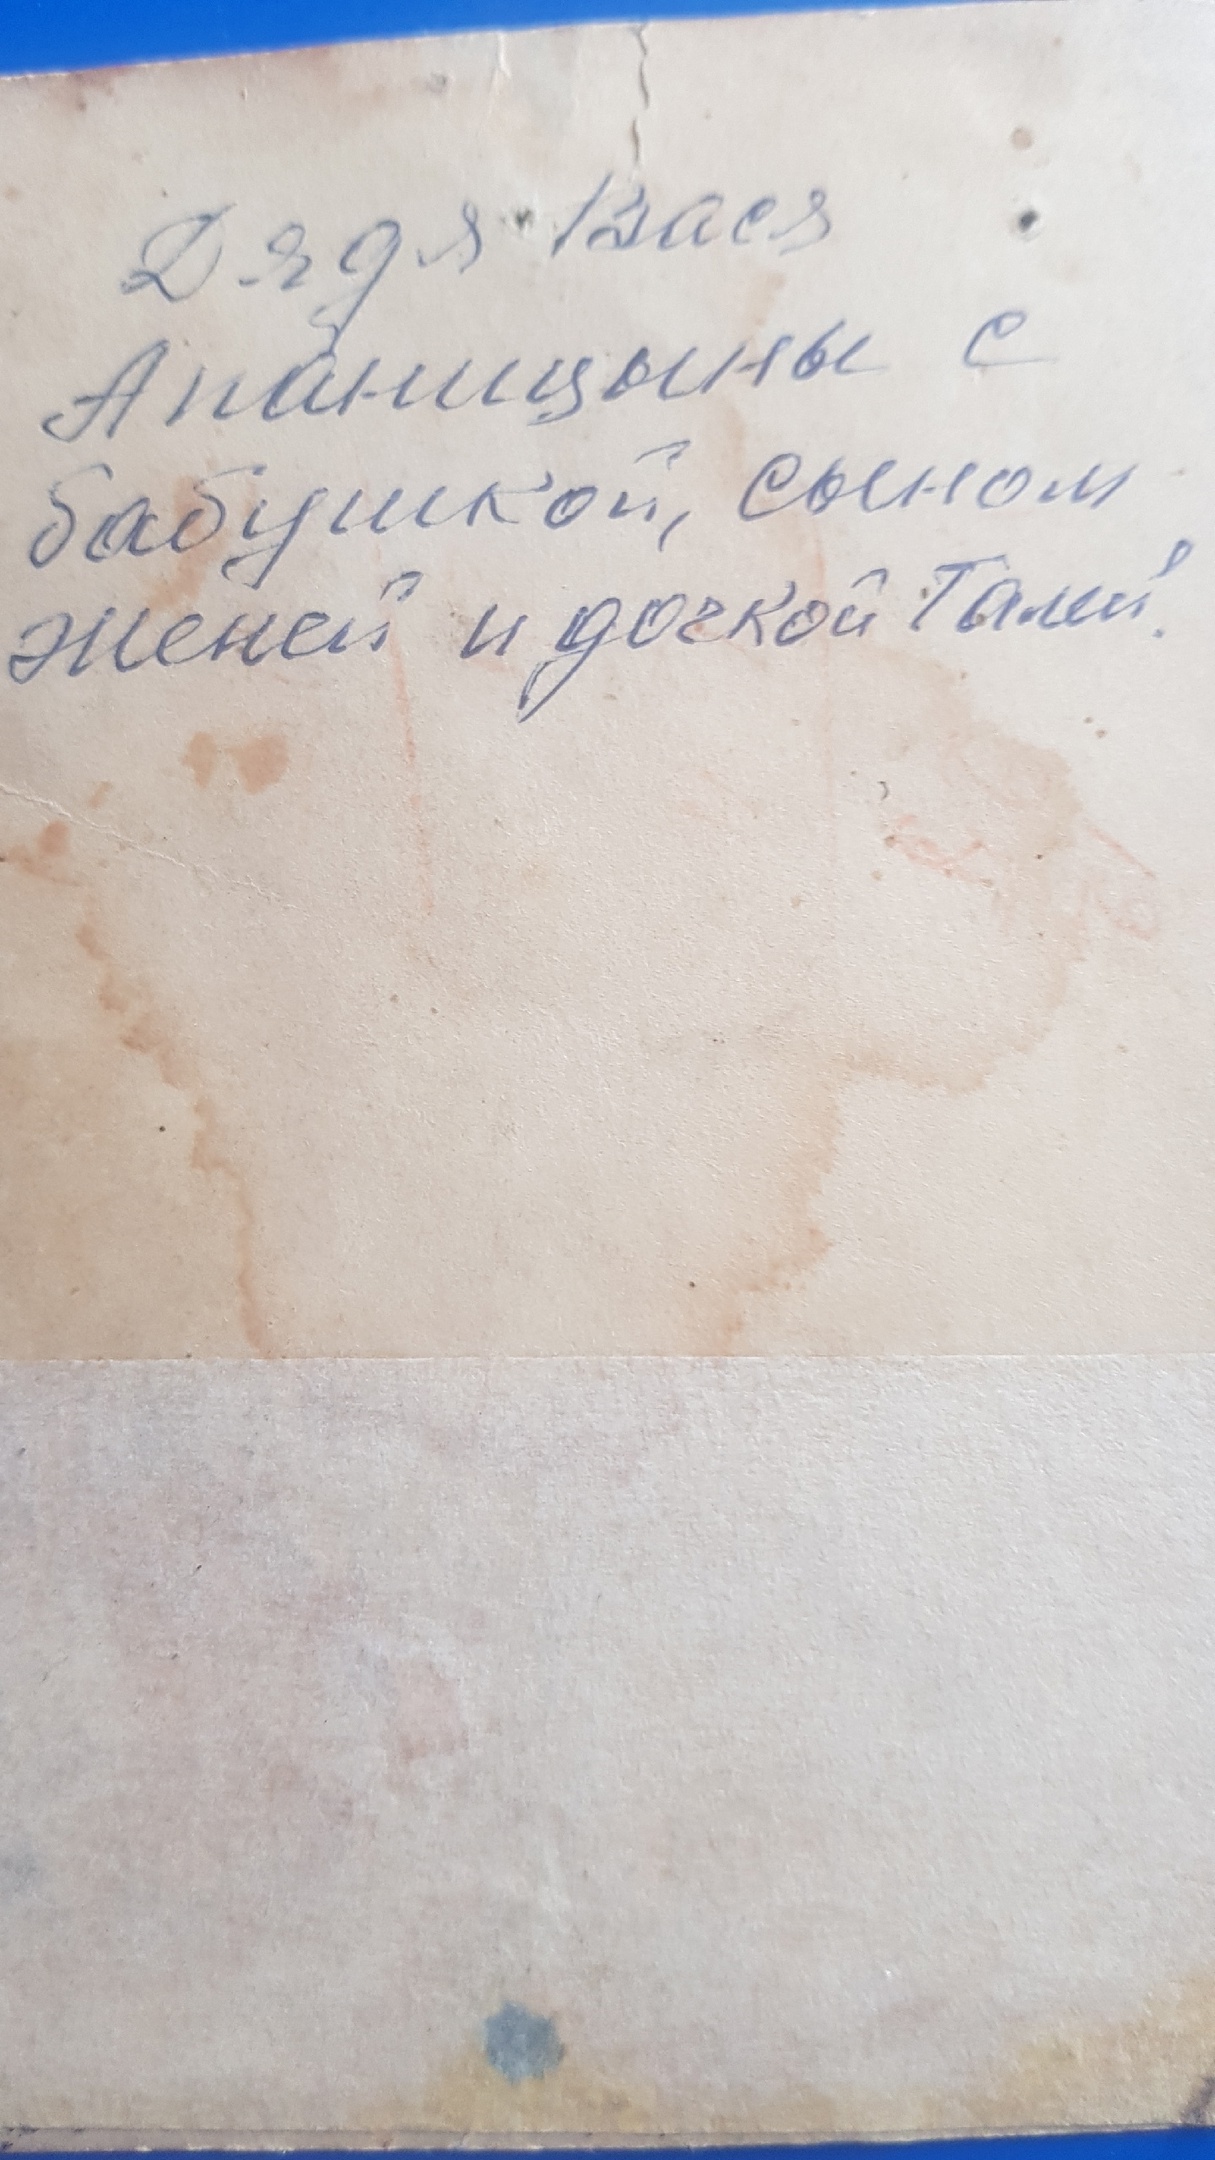 Дядя Вася
Апаницыны с
бабушкой, сыном
Женей и дочкой Галей.